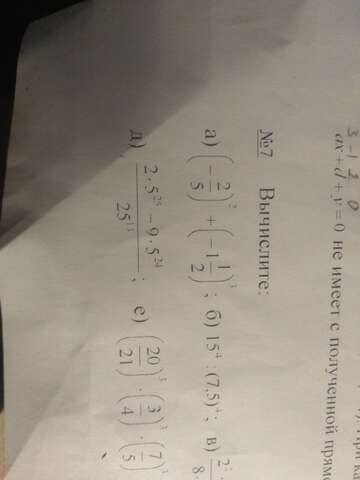 3 -1 1 0
ax+d+y=0 не имеет с полученной
№7 Вычислите:
а) (-2/5)² + (-1 1/2)³; б) 15⁴ : (7,5)⁴; в)
д) (2·5²⁵ − 9·5²⁴)/25¹³; е) (20/21)³ · (3/4)³ · (7/5)³